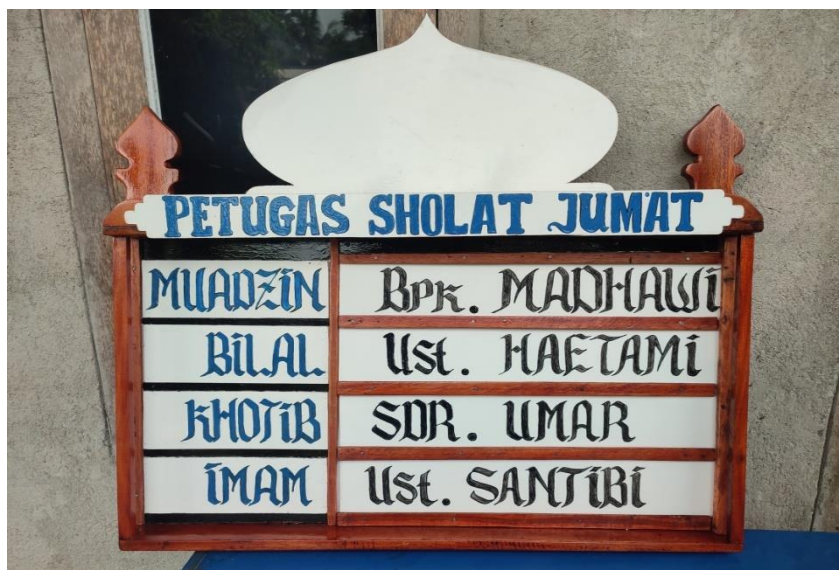 PETUGAS SHOLAT JUM'AT
MUADZiN Bpk. MADHAWi
BiLAL Ust. HAETAMi
KHOTiB SDR. UMAR
iMAM Ust. SANTiBi